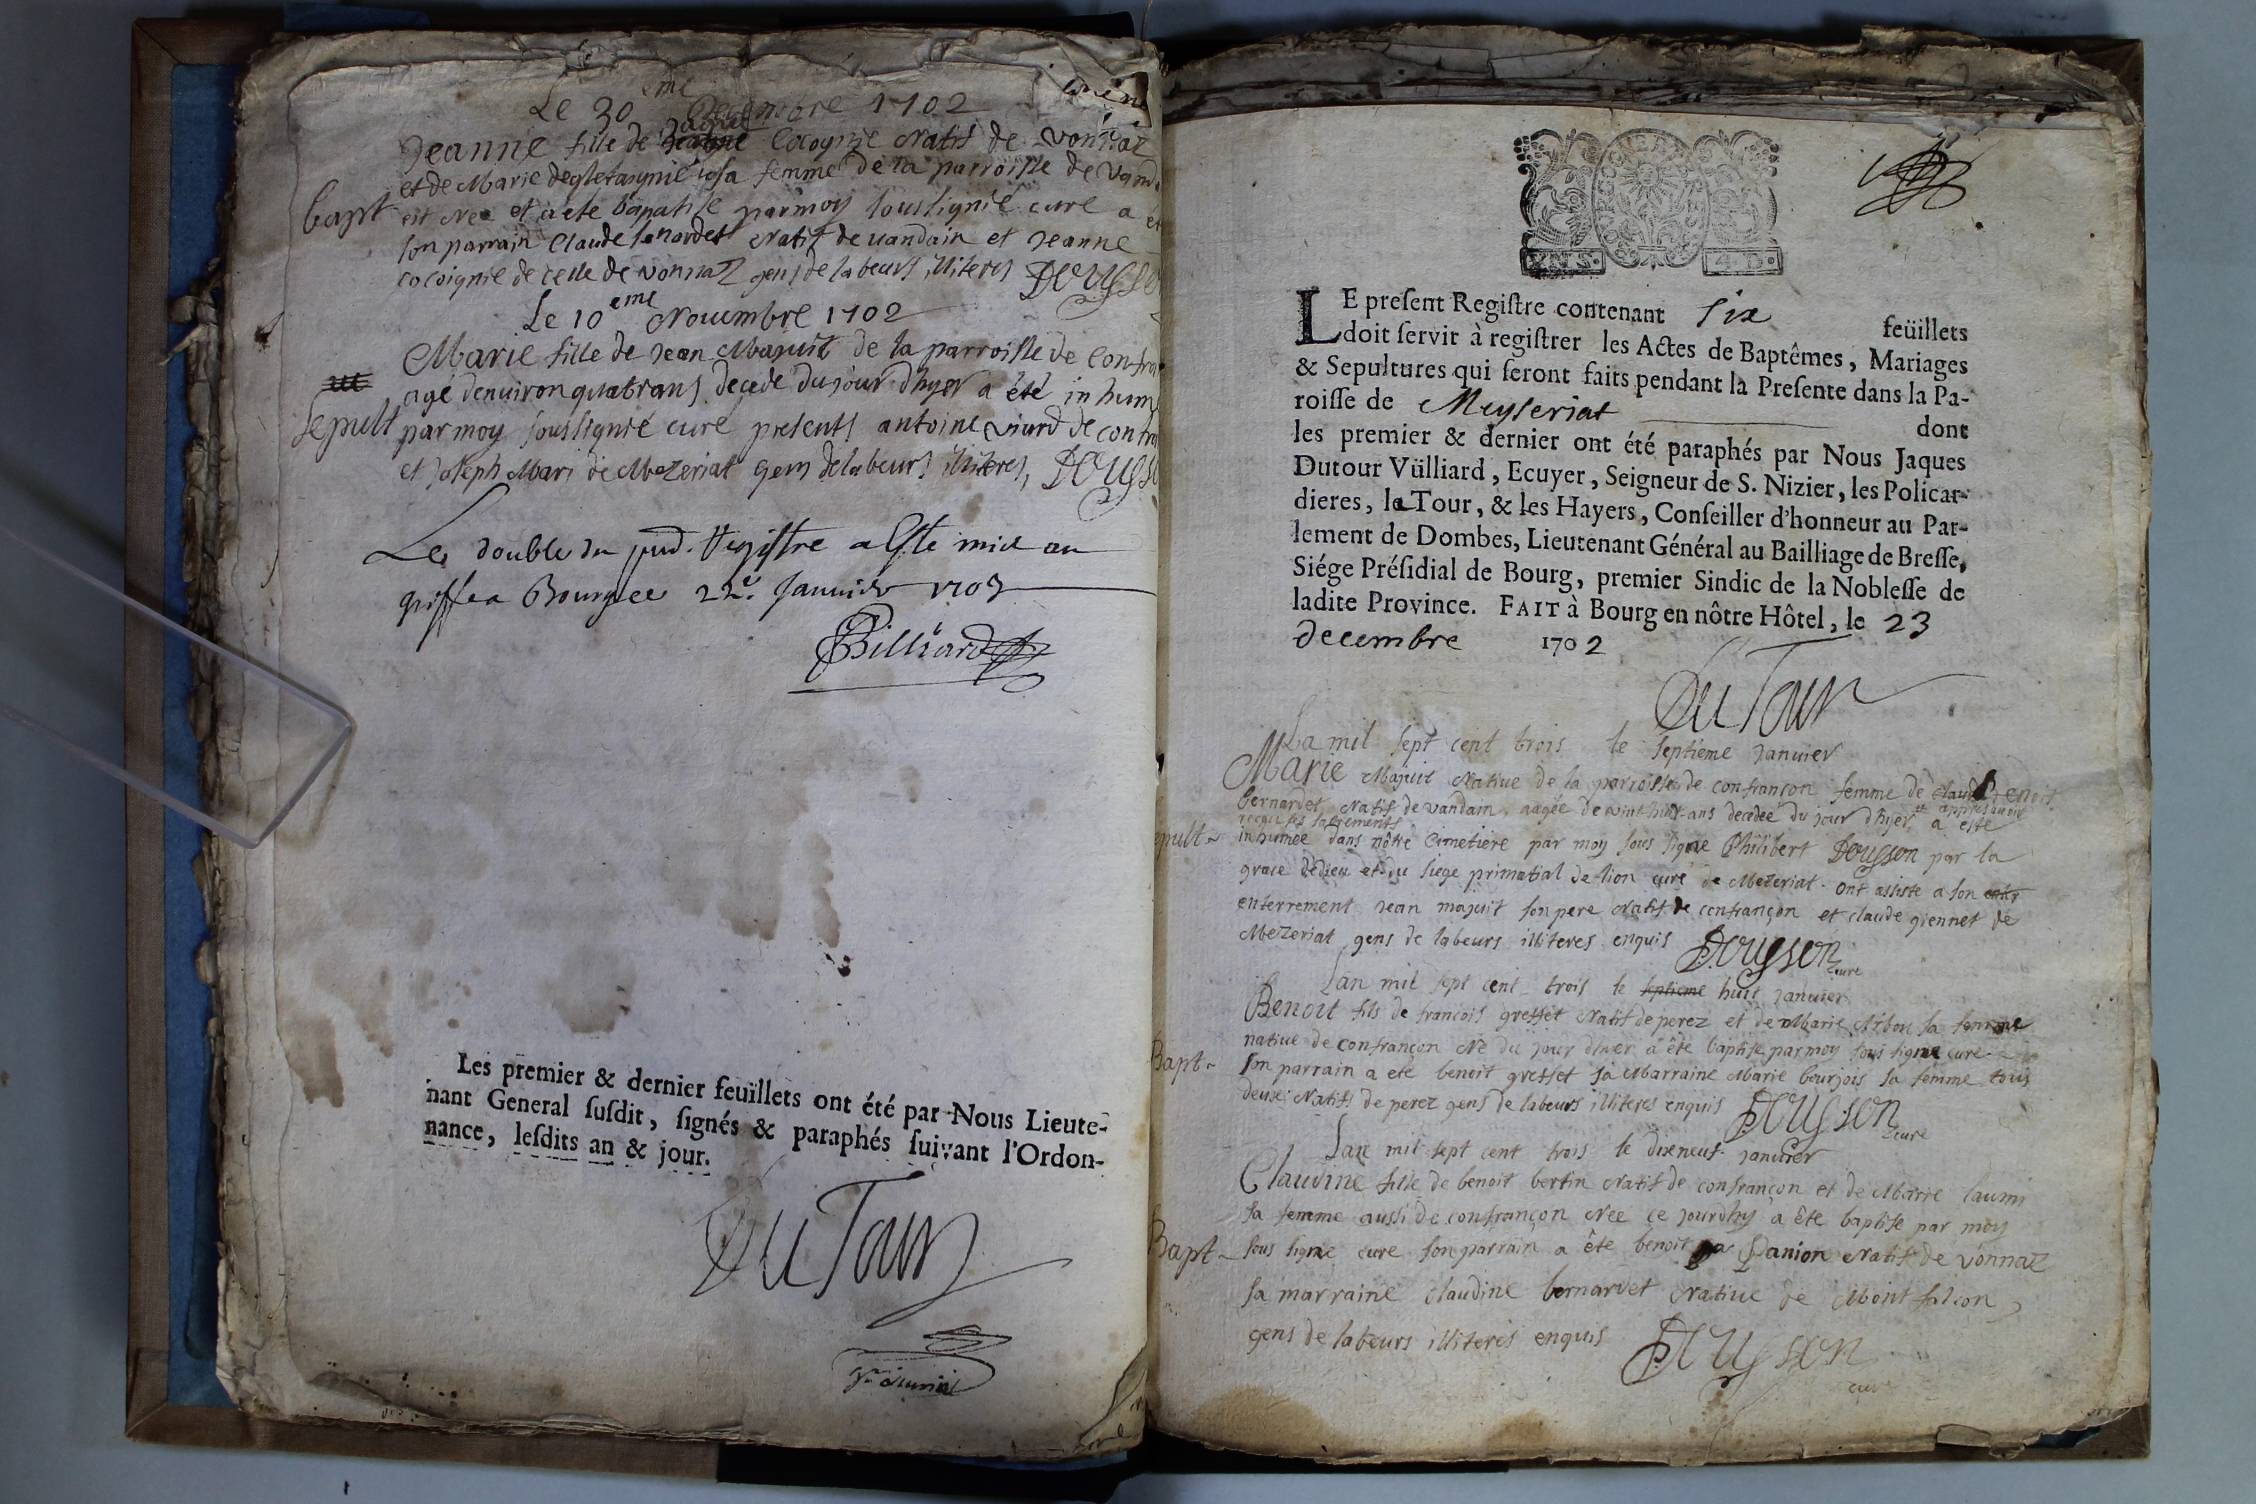 Le 30eme Decembre 1702
Jeanne fille de Cocogne Natif de vonnaz
et de Marie sa femme de la parroisse de Vand
Bapt est Nee et a ete bapatise par moy soussignié curé a ét
son parrain Claude Natif de vandain et Jeanne
cocoignie de celle de vonnaz gens de labeurs illiteres Douysson
Le 10eme Novembre 1702
Marie fille de Jean Majuit de la parroisse de Confra
agé denuiron quatrans decede du jour dhyer a été inhum
Sepult par moy soussignié curé presents antoine viurd de confra
et Joseph Mari de Mezeriat gens de labeurs illiteres, Douysso
Le double du pnt. Registre a Este mis au
greffe a Bourg ce 22e. Januier 1703
Billiard
Les premier & dernier feüillets ont été par Nous Lieute-
nant General susdit, signés & paraphés suivant l'Ordon-
nance, lesdits an & jour.
DuTour
BOURG EN BRESSE
4 D.
LE present Registre contenant six feüillets
doit servir à registrer les Actes de Baptêmes, Mariages
& Sepultures qui seront faits pendant la Presente dans la Pa-
roisse de Meyseriat dont
les premier & dernier ont été paraphés par Nous Jaques
Dutour Vülliard, Ecuyer, Seigneur de S. Nizier, les Policar-
dieres, la Tour, & les Hayers, Conseiller d'honneur au Par-
lement de Dombes, Lieutenant Général au Bailliage de Bresse,
Siége Présidial de Bourg, premier Sindic de la Noblesse de
ladite Province. FAIT à Bourg en nôtre Hôtel, le 23
decembre 1702
DuTour
La mil sept cent trois le septieme januier
Marie Majuit Natiue de la parroisse de confrançon femme de benoit
bernardet Natif de vandain aagée de vint huit ans decedée du jour dhyer et apprés auoir
receu ses sacrements a este
pult inhumée dans nôtre Cimetiere par moy sous signe Philibert Douysson par la
grace de dieu et du siege primatial de lion curé de Mezeriat. ont assiste a son entr
enterrement jean majuit son pere Natif de confrançon et claude giennet de
Mezeriat gens de labeurs illiteres enquis Douysson curé
Lan mil sept cent trois le septieme huit januier
Benoit fils de francois gresset Natif de perez et de Marie Arbon sa femme
natiue de confrançon Né du jour dhier a été baptise par moy sous signe curé
Bapt son parrain a eté benoit gresset sa Marraine Marie bourjois sa femme tous
deux Natifs de perez gens de labeurs illiteres enquis Douysson curé
Lan mil sept cent trois le dixneuf januier
Claudine fille de benoit bertin Natif de confrançon et de Marie laumi
sa femme aussi de confrançon Née ce jourdhy a été baptise par moy
Bapt sous signe curé son parrain a été benoit Panion Natif de vonnaz
sa marraine claudine bernardet Natiue de Montfalcon,
gens de labeurs illiteres enquis Douysson
curé